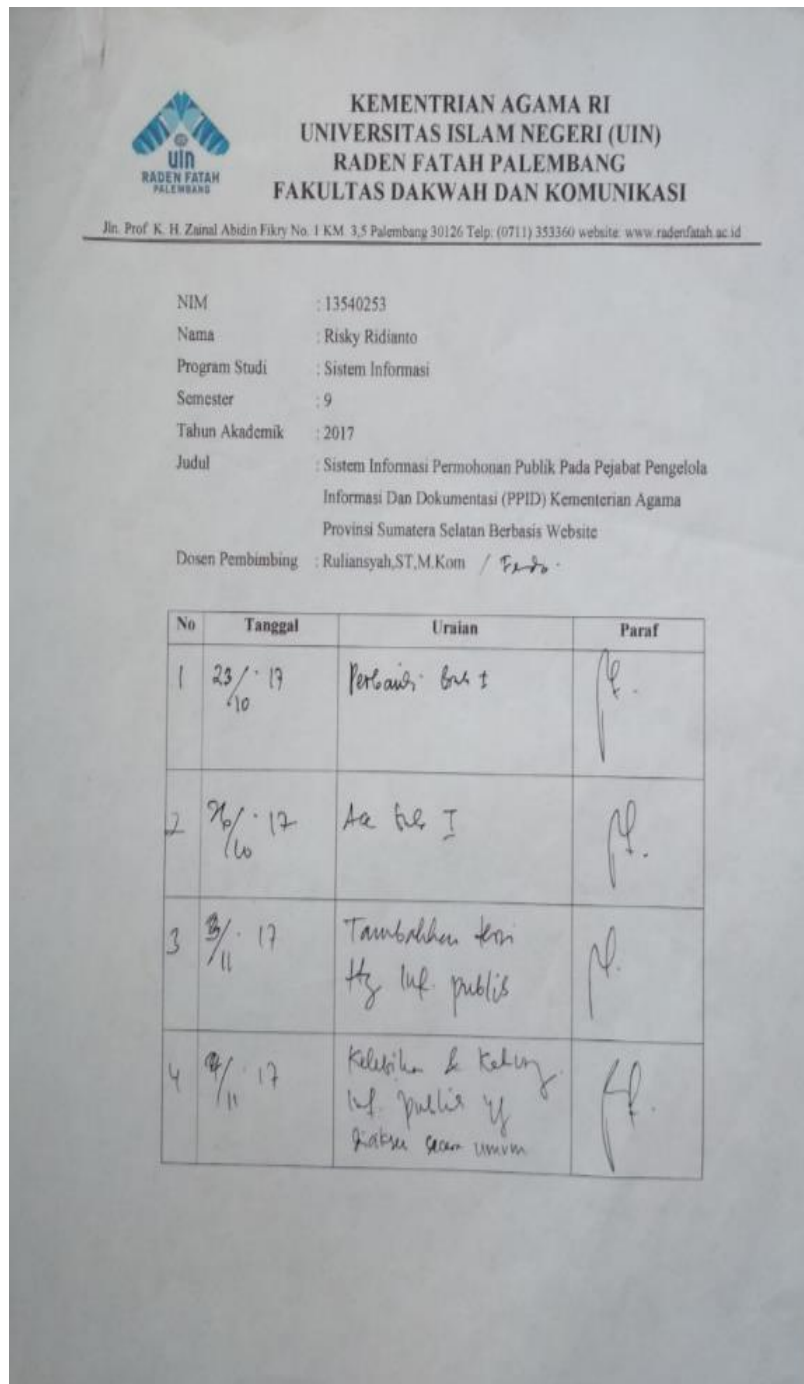 uin
RADEN FATAH
PALEMBANG
KEMENTRIAN AGAMA RI
UNIVERSITAS ISLAM NEGERI (UIN)
RADEN FATAH PALEMBANG
FAKULTAS DAKWAH DAN KOMUNIKASI
Jln. Prof. K. H. Zainal Abidin Fikry No. 1 KM. 3,5 Palembang 30126 Telp: (0711) 353360 website: www.radenfatah.ac.id
NIM : 13540253
Nama : Risky Ridianto
Program Studi : Sistem Informasi
Semester : 9
Tahun Akademik : 2017
Judul : Sistem Informasi Permohonan Publik Pada Pejabat Pengelola
Informasi Dan Dokumentasi (PPID) Kementerian Agama
Provinsi Sumatera Selatan Berbasis Website
Dosen Pembimbing : Ruliansyah,ST,M.Kom /
No Tanggal Uraian Paraf
1 23/10 · 17 Perbaiki bab I
2 26/10 · 17 Acc bab I
3 /11 · 17 Tambahkan teori
Inf. publik
4 /11 · 17 Kelebihan &
Inf. publik yg
diakses secara umum